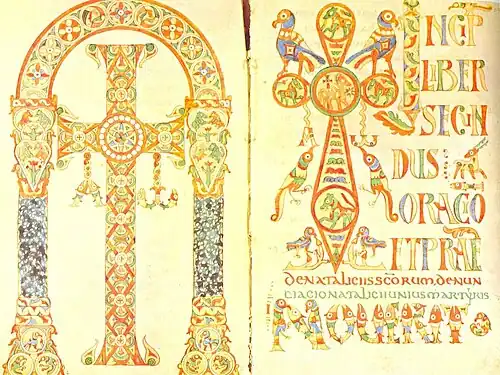 INCIP
LIBER
SECUN
DUS
ORACIO
ET PRAE
DENATALICIISSCORUM.DENUN
CIACIONATALICIIUNIUSMARTYRIS